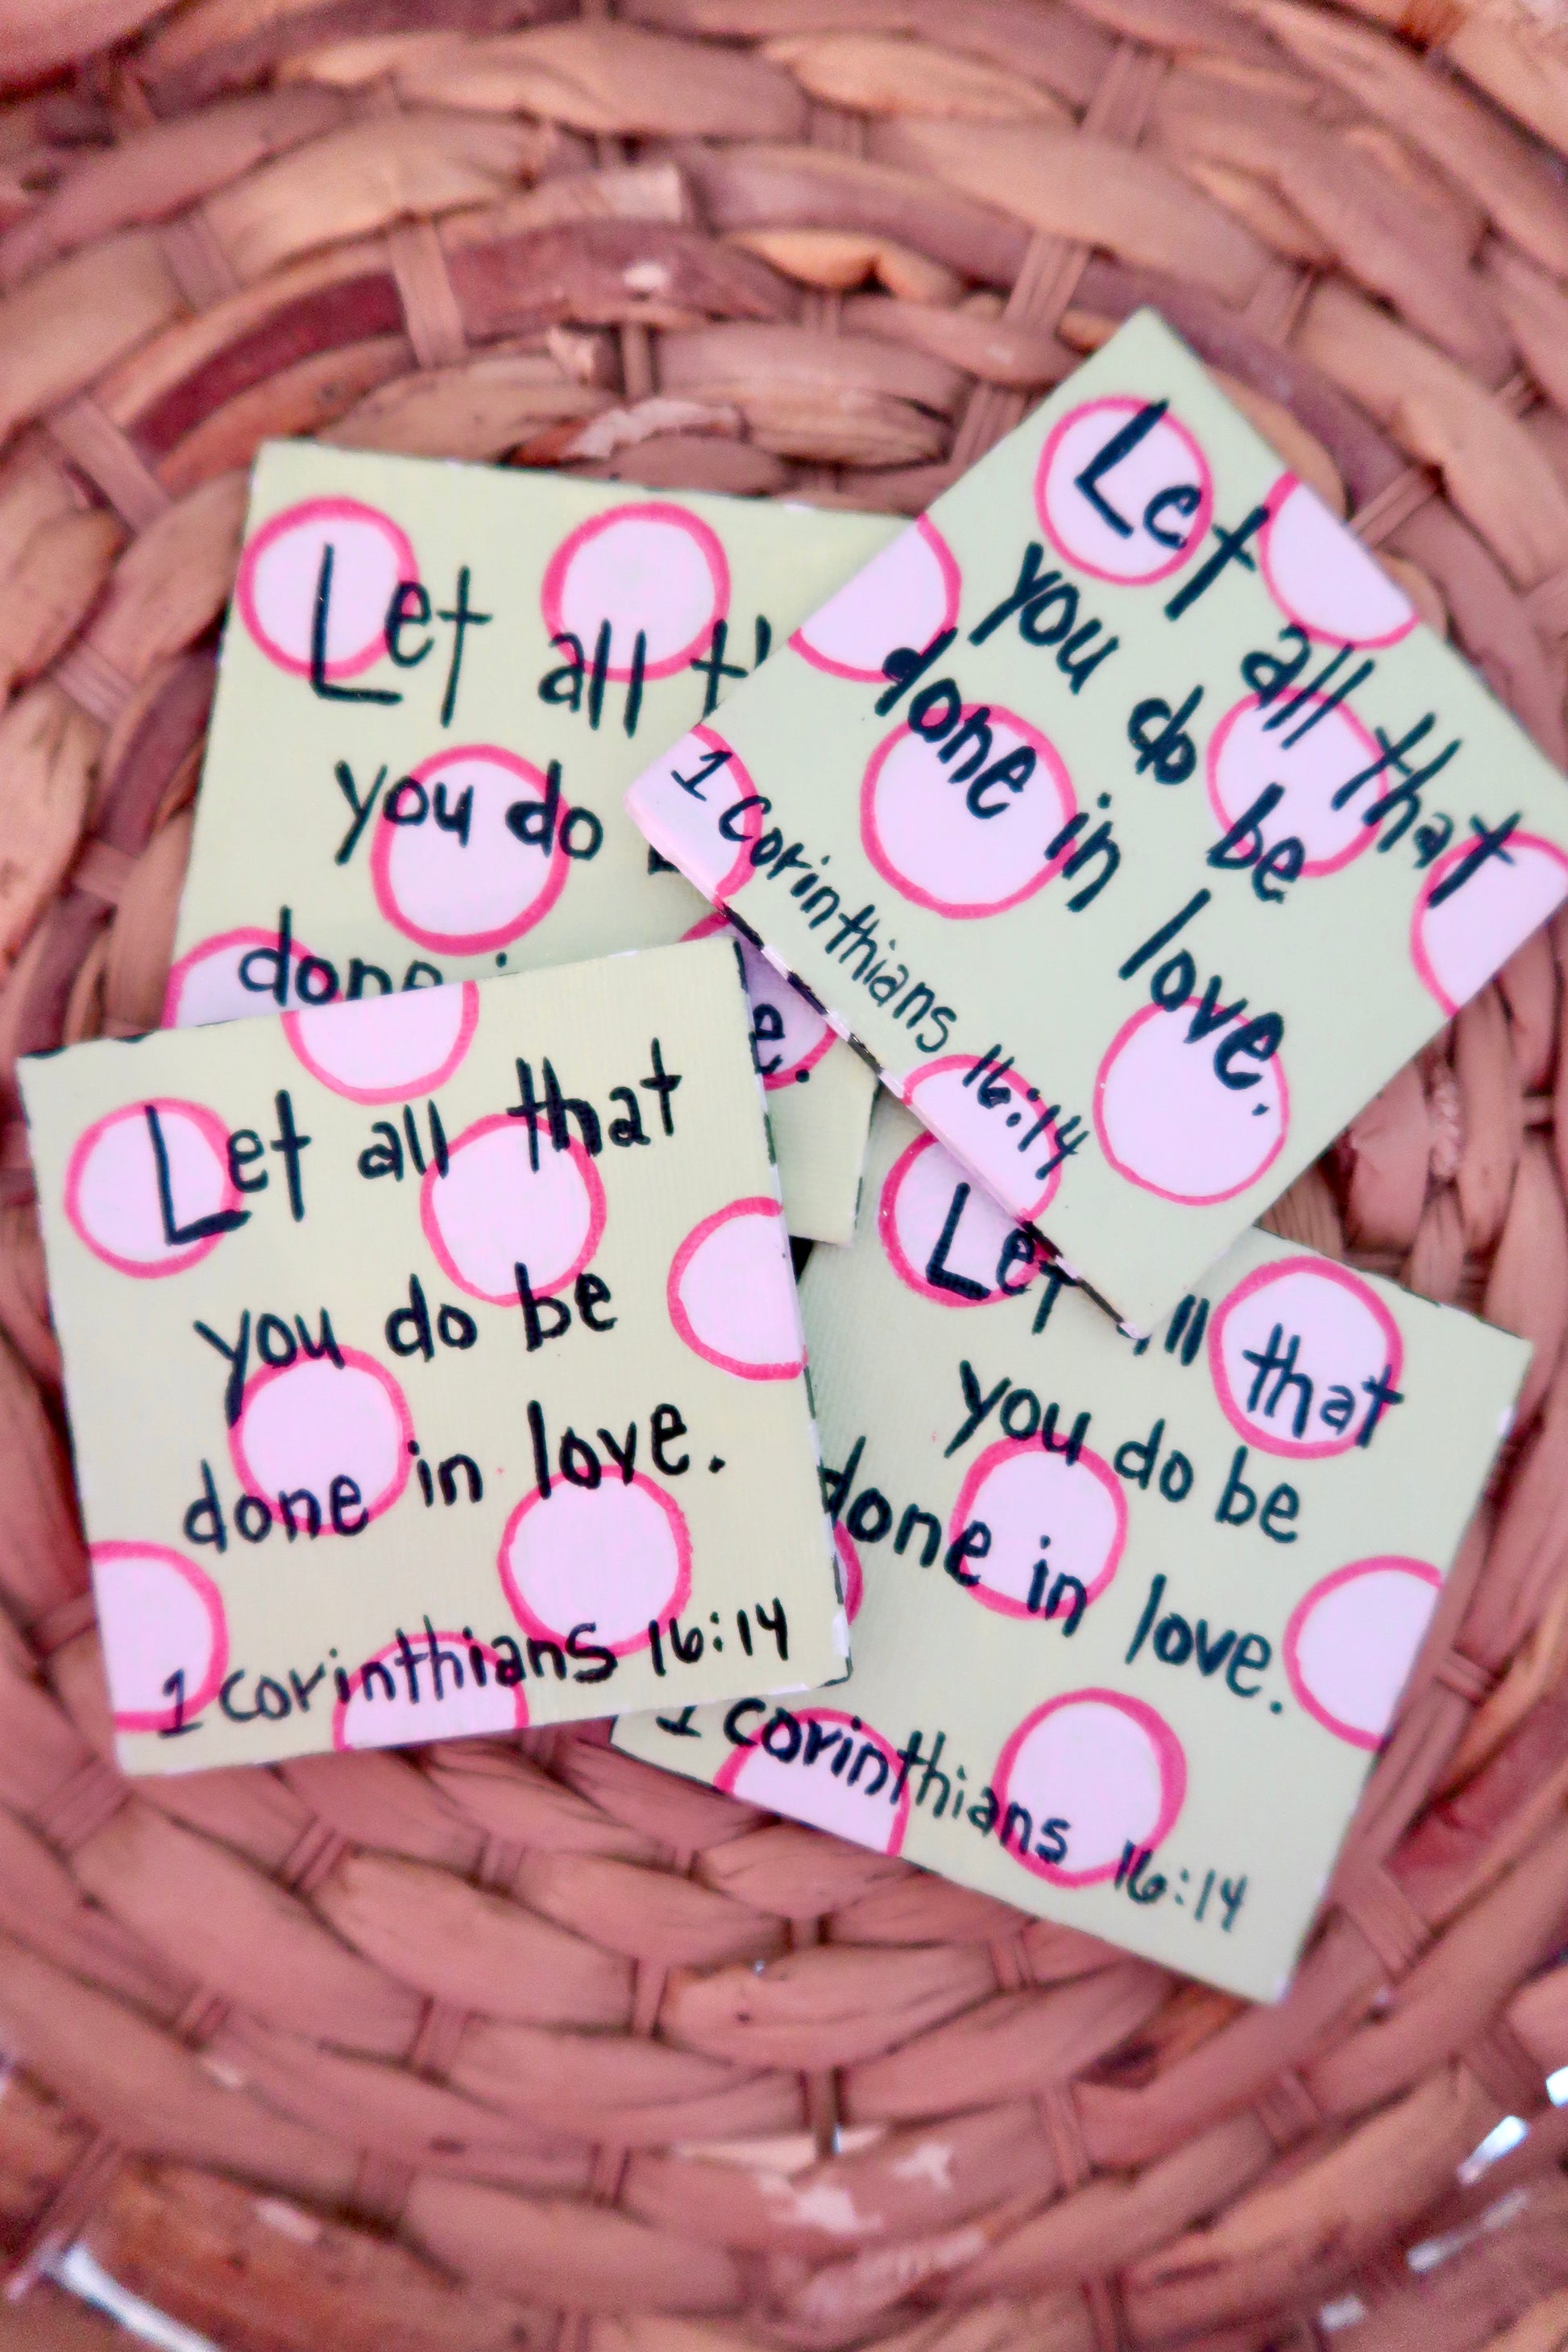 Let all
you do
done
e.
Let
all that
you do be
done in love.
1 Corinthians 16:14
Let all that
you do be
done in love.
1 Corinthians 16:14
Let all that
you do be
done in love.
1 Corinthians 16:14